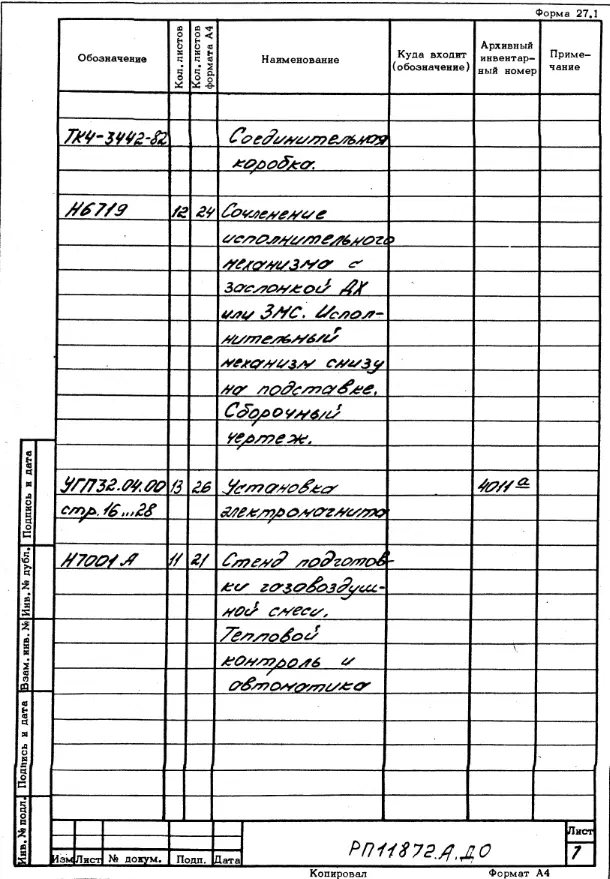 Форма 27.1
Обозначение
Кол. листов
Кол. листов формата А4
Наименование
Куда входит (обозначение)
Архивный инвентарный номер
Примечание
ТК4-3442-82 Соединительная
коробка.
Н6719 12 24 Сочленение
исполнительного
механизма с
заслонкой ДХ
или ЗМС. Испол-
нительный
механизм снизу
на подставке.
Сборочный
чертеж.
УГП32.04.00 13 26 Установка 4011а
стр. 16...28 электромагнита
Н7001А 11 21 Стенд подготов-
ки газовоздуш-
ной смеси.
Тепловой
контроль и
автоматика
Инв. № подл.
Подпись и дата
Взам. инв. №
Инв. № дубл.
Подпись и дата
Изм Лист № докум. Подп. Дата
РП11872.А.ДО
Лист
7
Копировал Формат А4